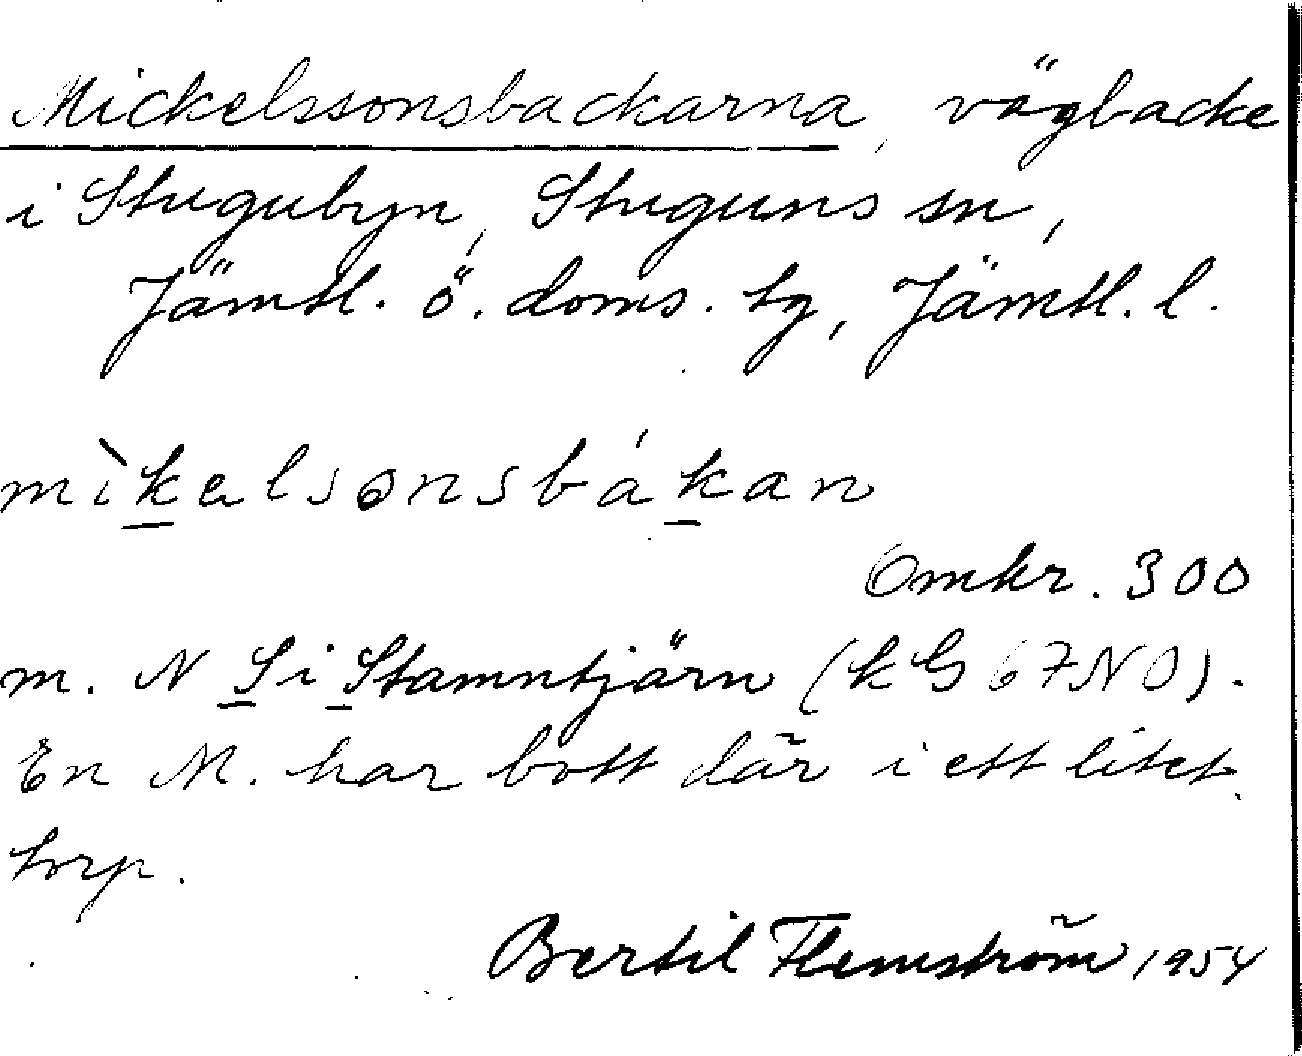 Mickelssonsbackarna, vägbacke
i Stugubyn, Stuguns sn,
Jämtl. ö. doms. tg, Jämtl. l.
mìkelsonsbákan
Omkr. 300
m. N S i Stamntjärn (kG 67NO).
En M. har bott där i ett litet
torp.
Bertil Flemström 1954